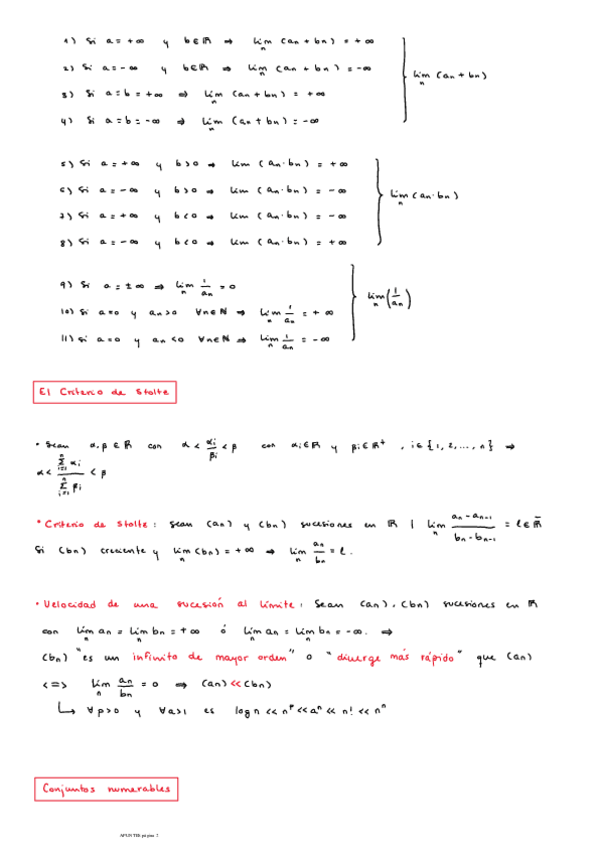 1) Si a = +∞ y b∈ℝ ⇒ lim_n (an + bn) = +∞
2) Si a = -∞ y b∈ℝ ⇒ lim_n (an + bn) = -∞
lim_n (an + bn)
3) Si a=b = +∞ ⇒ lim_n (an + bn) = +∞
4) Si a=b = -∞ ⇒ lim_n (an + bn) = -∞
5) Si a = +∞ y b>0 ⇒ lim (an·bn) = +∞
6) Si a = -∞ y b>0 ⇒ lim (an·bn) = -∞
lim_n (an·bn)
7) Si a = +∞ y b<0 ⇒ lim (an·bn) = -∞
8) Si a = -∞ y b<0 ⇒ lim (an·bn) = +∞
9) Si a = ±∞ ⇒ lim_n 1/an = 0
lim_n (1/an)
10) Si a=0 y an>0 ∀n∈ℕ ⇒ lim_n 1/an = +∞
11) Si a=0 y an<0 ∀n∈ℕ ⇒ lim_n 1/an = -∞
El Criterio de Stolte
• Sean α,β∈ℝ con α < αi/βi < β con αi∈ℝ y βi∈ℝ⁺ , i∈{1,2,...,n} ⇒
α < Σ_{i=1}^n αi / Σ_{i=1}^n βi < β
• Criterio de Stolte: Sean (an) y (bn) sucesiones en ℝ | lim_n (an - an-1)/(bn - bn-1) = l∈ℝ̄
Si (bn) creciente y lim_n (bn) = +∞ ⇒ lim_n an/bn = l.
• Velocidad de una sucesión al límite: Sean (an), (bn) sucesiones en ℝ
con lim_n an = lim_n bn = +∞ ó lim_n an = lim_n bn = -∞. ⇒
(bn) "es un infinito de mayor orden" o "diverge más rápido" que (an)
<=> lim_n an/bn = 0 ⇒ (an) << (bn)
↳ ∀p>0 y ∀a>1 es log n << n^p << a^n << n! << n^n
Conjuntos numerables
APUNTES página 2